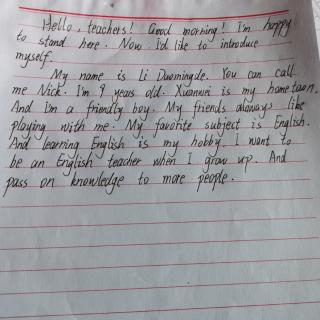 Hello, teachers! Good morning! I'm happy
to stand here. Now I'd like to introduce
myself.
My name is Li Daomingde. You can call
me Nick. I'm 9 years old. Xuanwei is my hometown.
And I'm a friendly boy. My friends always like
playing with me. My favorite subject is English.
And learning English is my hobby. I want to
be an English teacher when I grow up. And
pass on knowledge to more people.